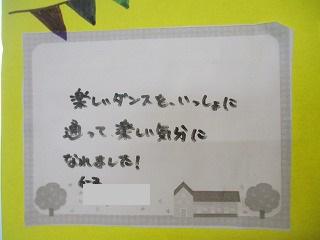 楽しいダンスを、いっしょに
通って楽しい気分に
なれました!